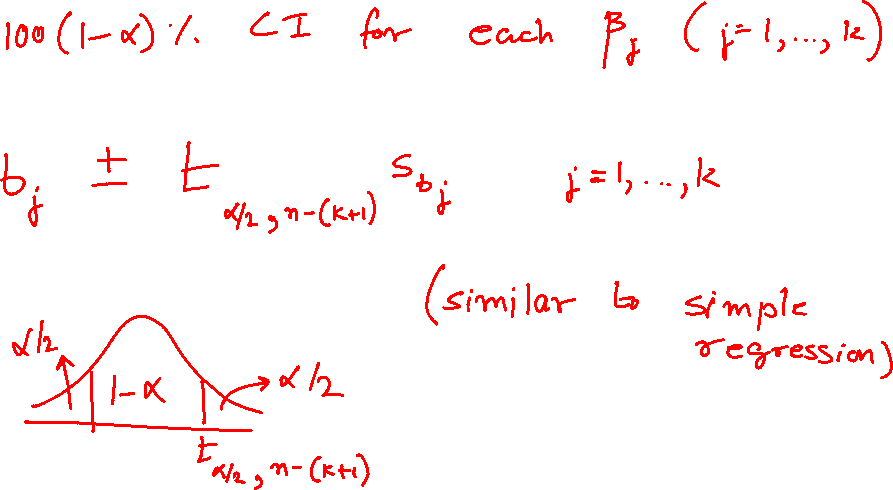 100(1-α)% CI for each βj (j=1,...,k)
bj ± t α/2, n-(k+1) s bj j=1,...,k
(similar to simple
regression)
α/2
1-α
α/2
t α/2, n-(k+1)